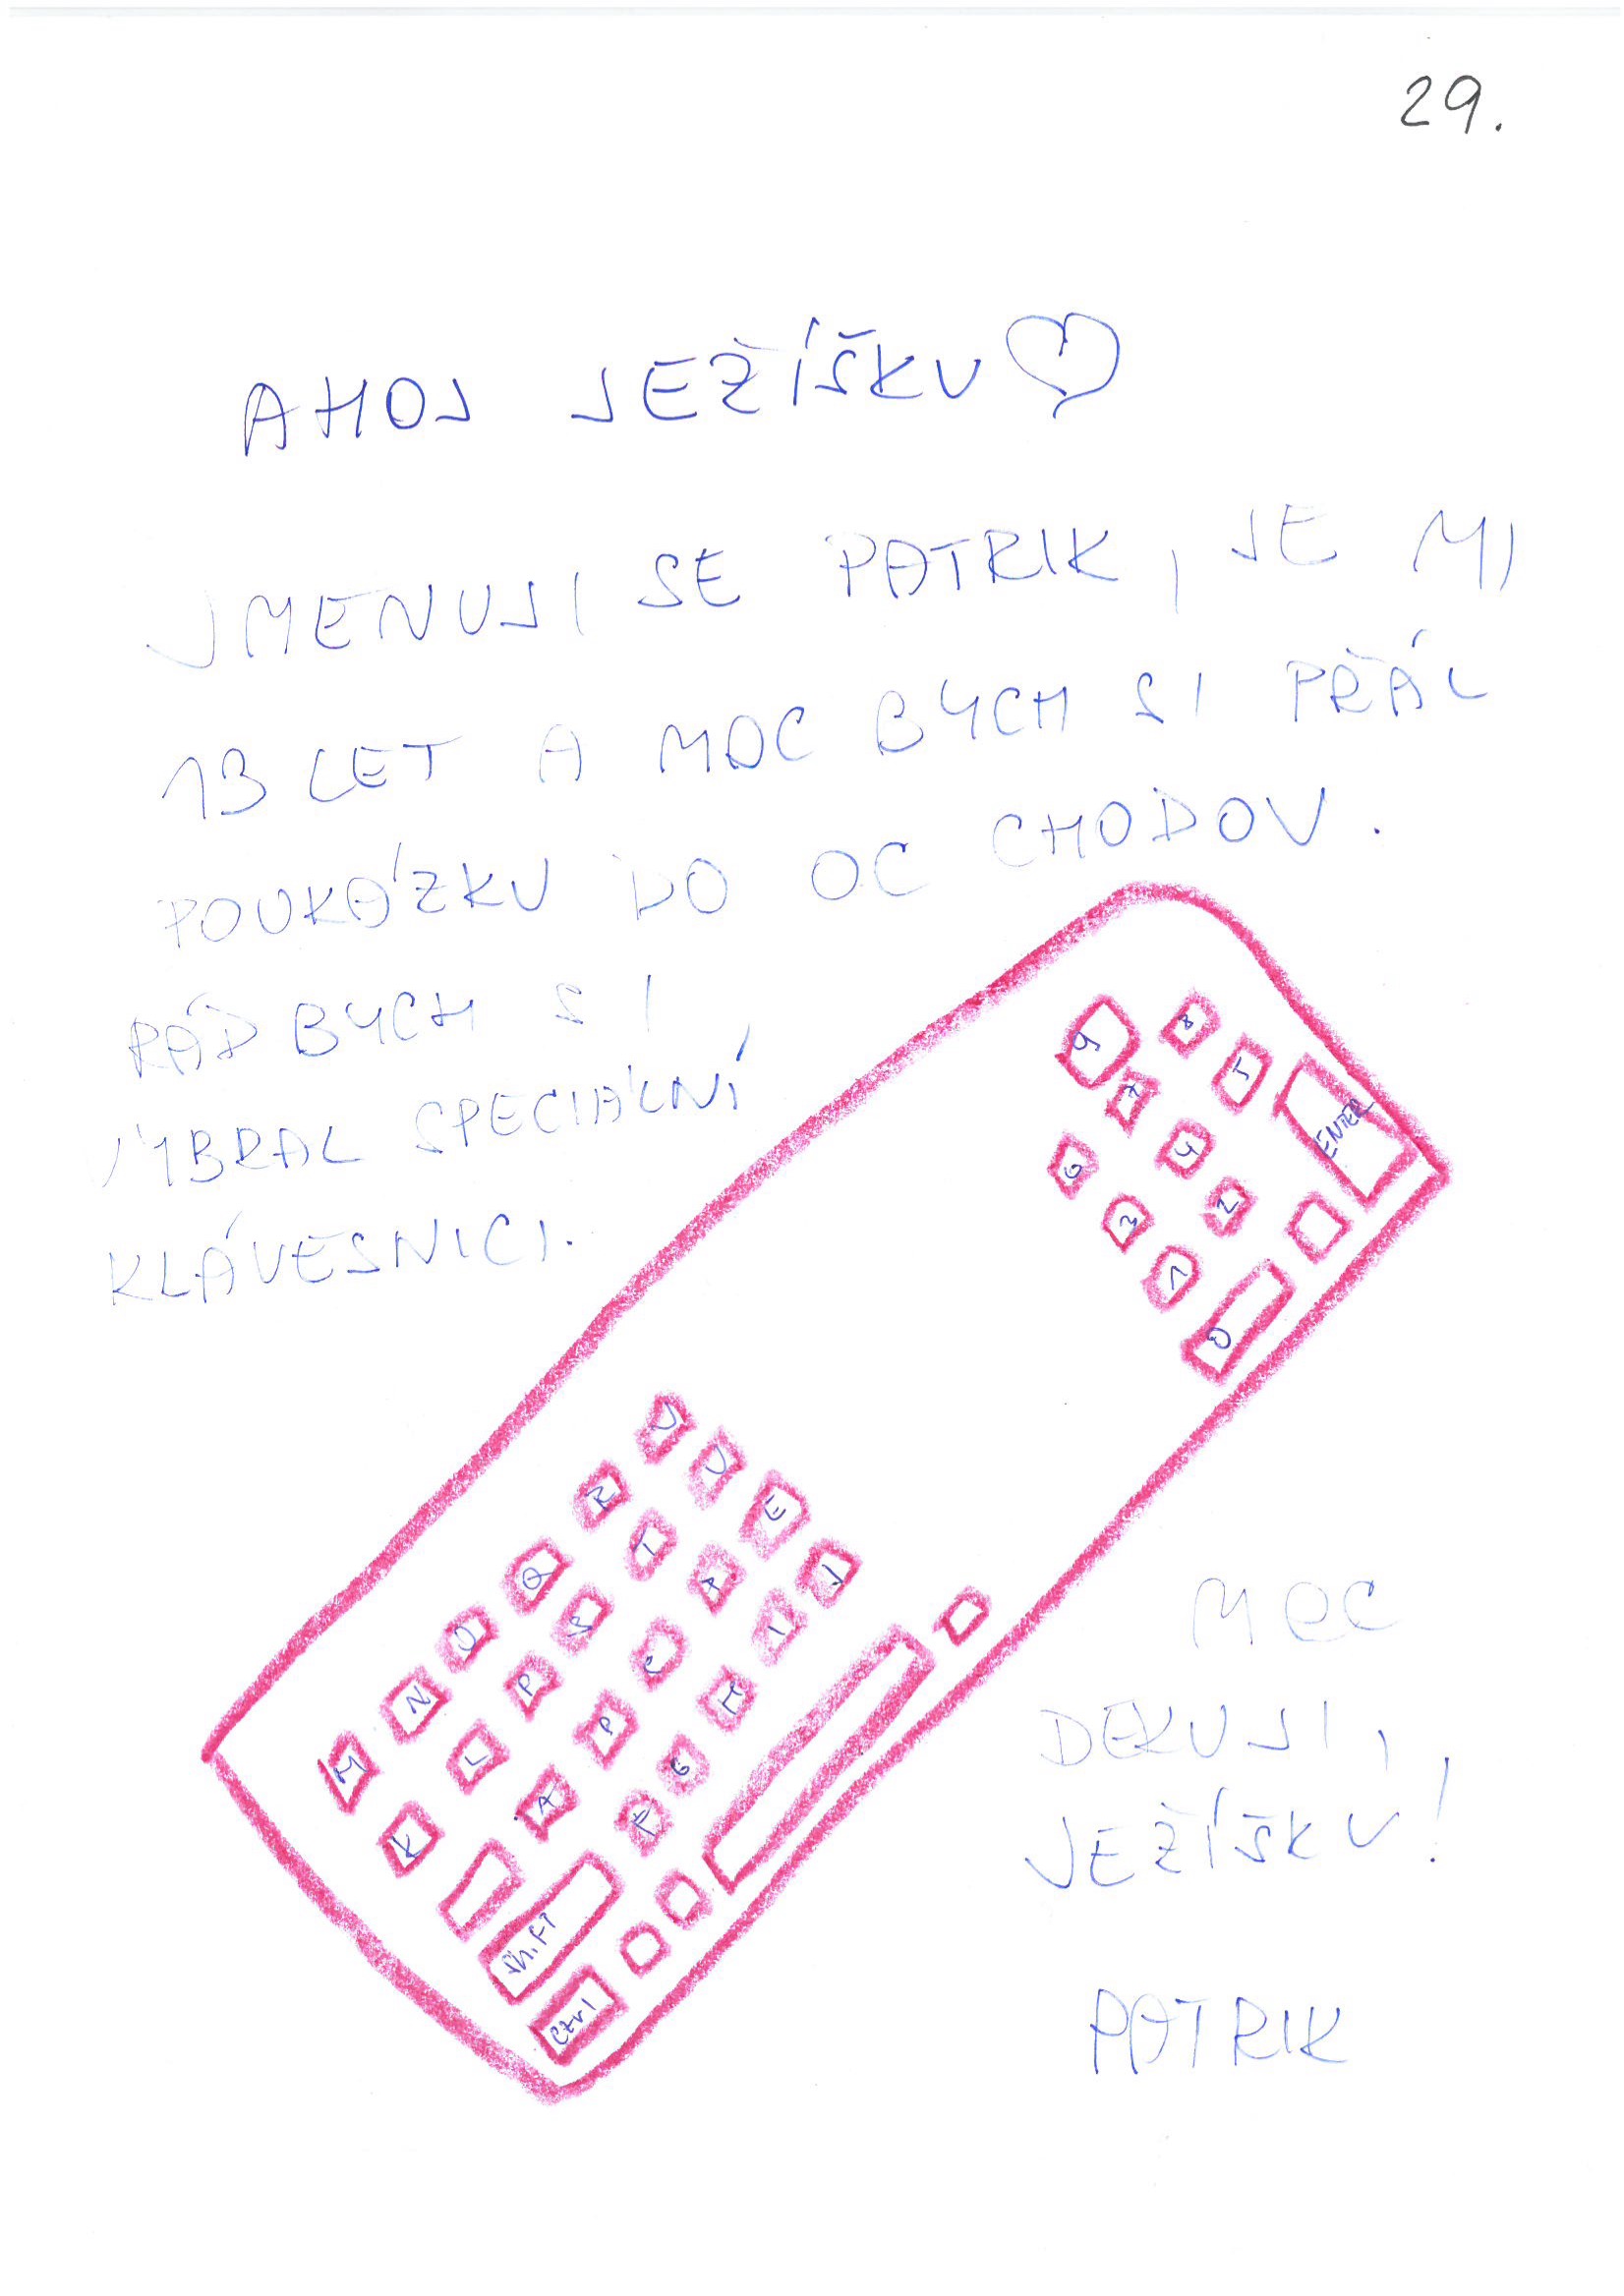 29.
AHOJ JEŽÍŠKU
JMENUJI SE PATRIK, JE MI
13 LET A MOC BYCH SI PŘÁL
POUKÁZKU DO OC CHODOV.
RÁD BYCH SI
VYBRAL SPECIÁLNÍ
KLÁVESNICI.
9 8
7 5 ENTER
6 4
3 2
1
0
V
R V E
Q L A J
O S C I
N P P H
M L A G
K F
Shift
Ctrl
MOC
DEKUJI,
JEŽÍŠKU!
PATRIK